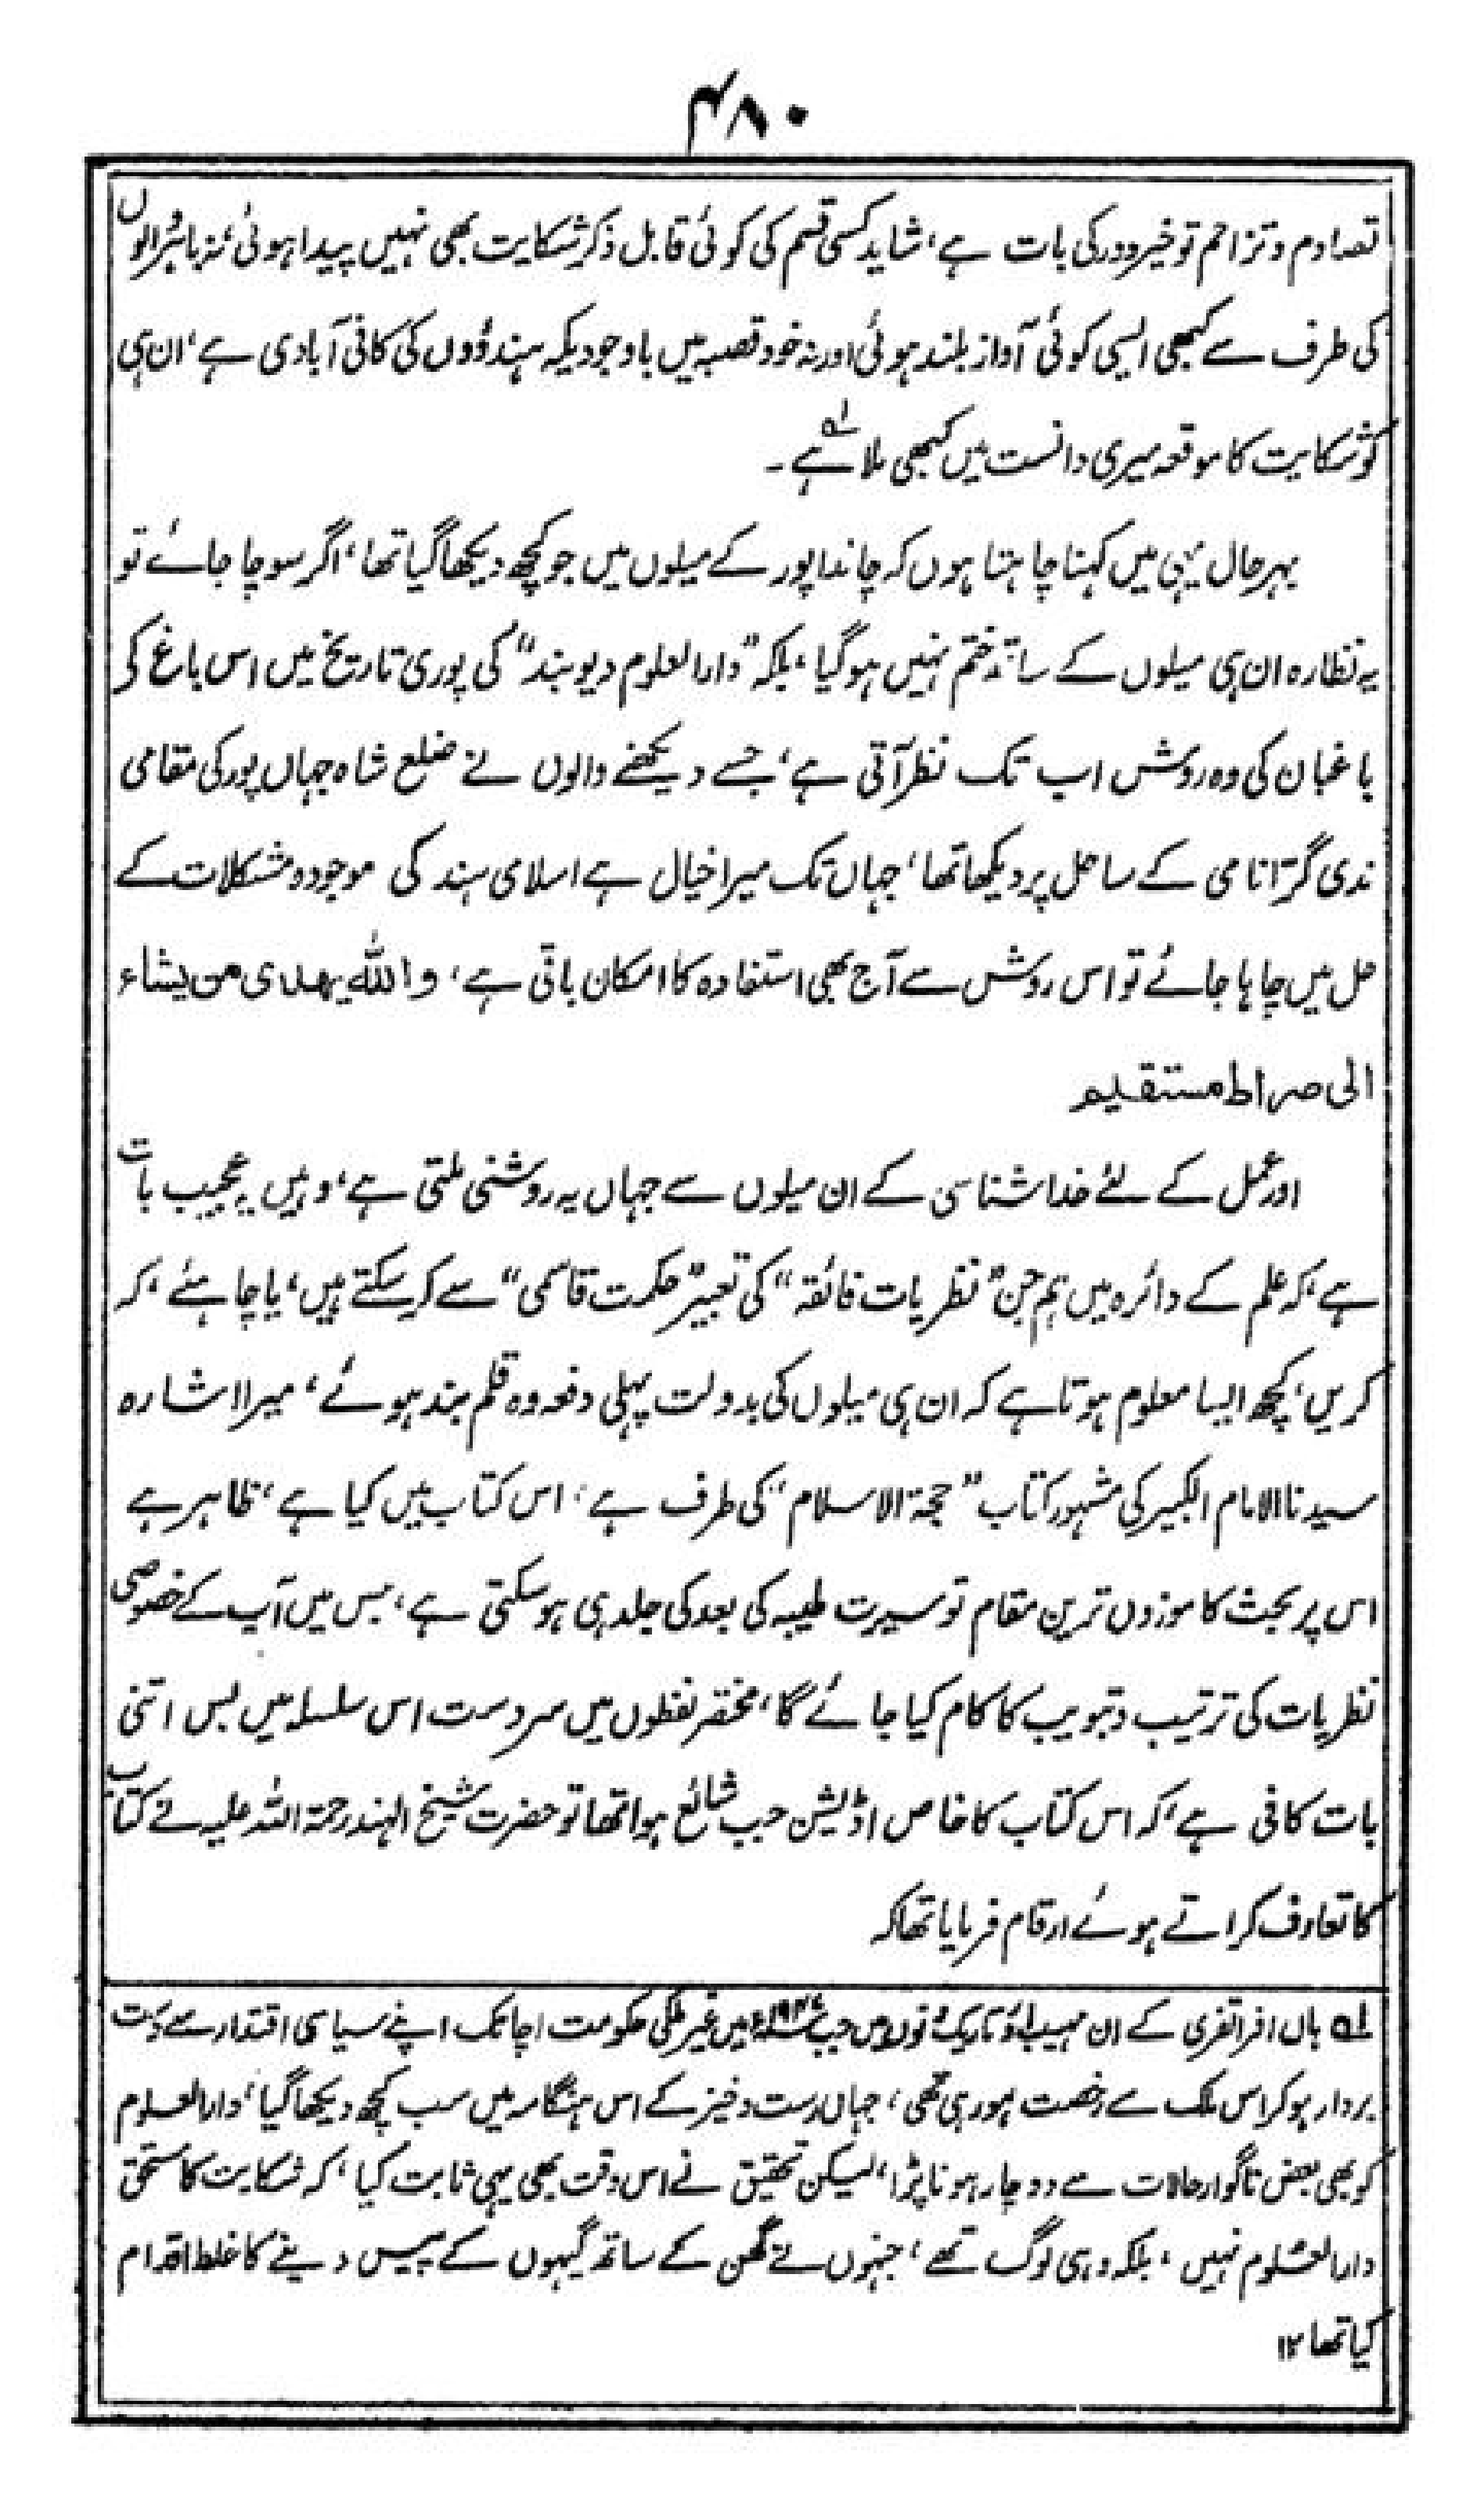 ۴۸۰
تصادم وتزاحم تو خیر دور کی بات ہے، شاید کسی قسم کی کوئی قابل ذکر شکایت بھی نہیں پیدا ہوئی، نہ باہر والوں
کی طرف سے کبھی ایسی کوئی آواز بلند ہوئی اور نہ خود قصبہ میں باوجودیکہ ہندؤوں کی کافی آبادی ہے، ان ہی
کو شکایت کا موقعہ میری دانست میں کبھی ملا ہے ۱؎ ۔
بہرحال یہی میں کہنا چاہتا ہوں کہ چاندا پور کے میلوں میں جو کچھ دیکھا گیا تھا، اگر سوچا جائے تو
یہ نظارہ ان ہی میلوں کے ساتھ ختم نہیں ہوگیا، بلکہ "دارالعلوم دیوبند" کی پوری تاریخ میں اس باغ کی
باغبان کی وہ روش اب تک نظر آتی ہے، جسے دیکھنے والوں نے ضلع شاہ جہاں پور کی مقامی
ندی گرّا نامی کے ساحل پر دیکھا تھا، جہاں تک میرا خیال ہے اسلامی ہند کی موجودہ مشکلات کے
حل میں چاہا جائے تو اس روش سے آج بھی استفادہ کا امکان باقی ہے، واللہ یہدی من یشاء
الی صراط مستقیم
اور عمل کے لئے خدا شناسی کے ان میلوں سے جہاں یہ روشنی ملتی ہے، وہیں یہ عجیب بات
ہے، کہ علم کے دائرہ میں ہم جن "نظریات فائقہ" کی تعبیر "حکمت قاسمی" سے کر سکتے ہیں، یا چاہئے، کہ
کریں، کچھ ایسا معلوم ہوتا ہے کہ ان ہی میلوں کی بدولت پہلی دفعہ وہ قلم بند ہوئے، میرا اشارہ
سیدنا الامام الکبیر کی مشہور کتاب "حجۃ الاسلام" کی طرف ہے، اس کتاب میں کیا ہے، ظاہر ہے
اس پر بحث کا موزوں ترین مقام تو سیرت طیبہ کی بعد کی جلد ہی ہوسکتی ہے، جس میں آپ کے خصوصی
نظریات کی ترتیب وتبویب کا کام کیا جائے گا، مختصر لفظوں میں سردست اس سلسلہ میں بس اتنی
بات کافی ہے، کہ اس کتاب کا خاص اڈیشن جب شائع ہوا تھا تو حضرت شیخ الہند رحمۃ اللہ علیہ نے کتاب
کا تعارف کراتے ہوئے ارقام فرمایا تھا کہ
۱؎ ہاں افراتفری کے ان مہیب اور تاریک دنوں میں جب ۱۹۴۷ء میں غیر ملکی حکومت اچانک اپنے سیاسی اقتدار سے دست
بردار ہوکر اس ملک سے رخصت ہورہی تھی، جہاں رست وخیز کے اس ہنگامہ میں سب کچھ دیکھا گیا، دارالعلوم
کو بھی بعض ناگوار حالات سے دوچار ہونا پڑا، لیکن تحقیق نے اس وقت بھی یہی ثابت کیا، کہ شکایت کا مستحق
دارالعلوم نہیں، بلکہ وہی لوگ تھے، جنہوں نے گھن کے ساتھ گیہوں کے پیس دینے کا غلط اقدام
کیا تھا ۱۲